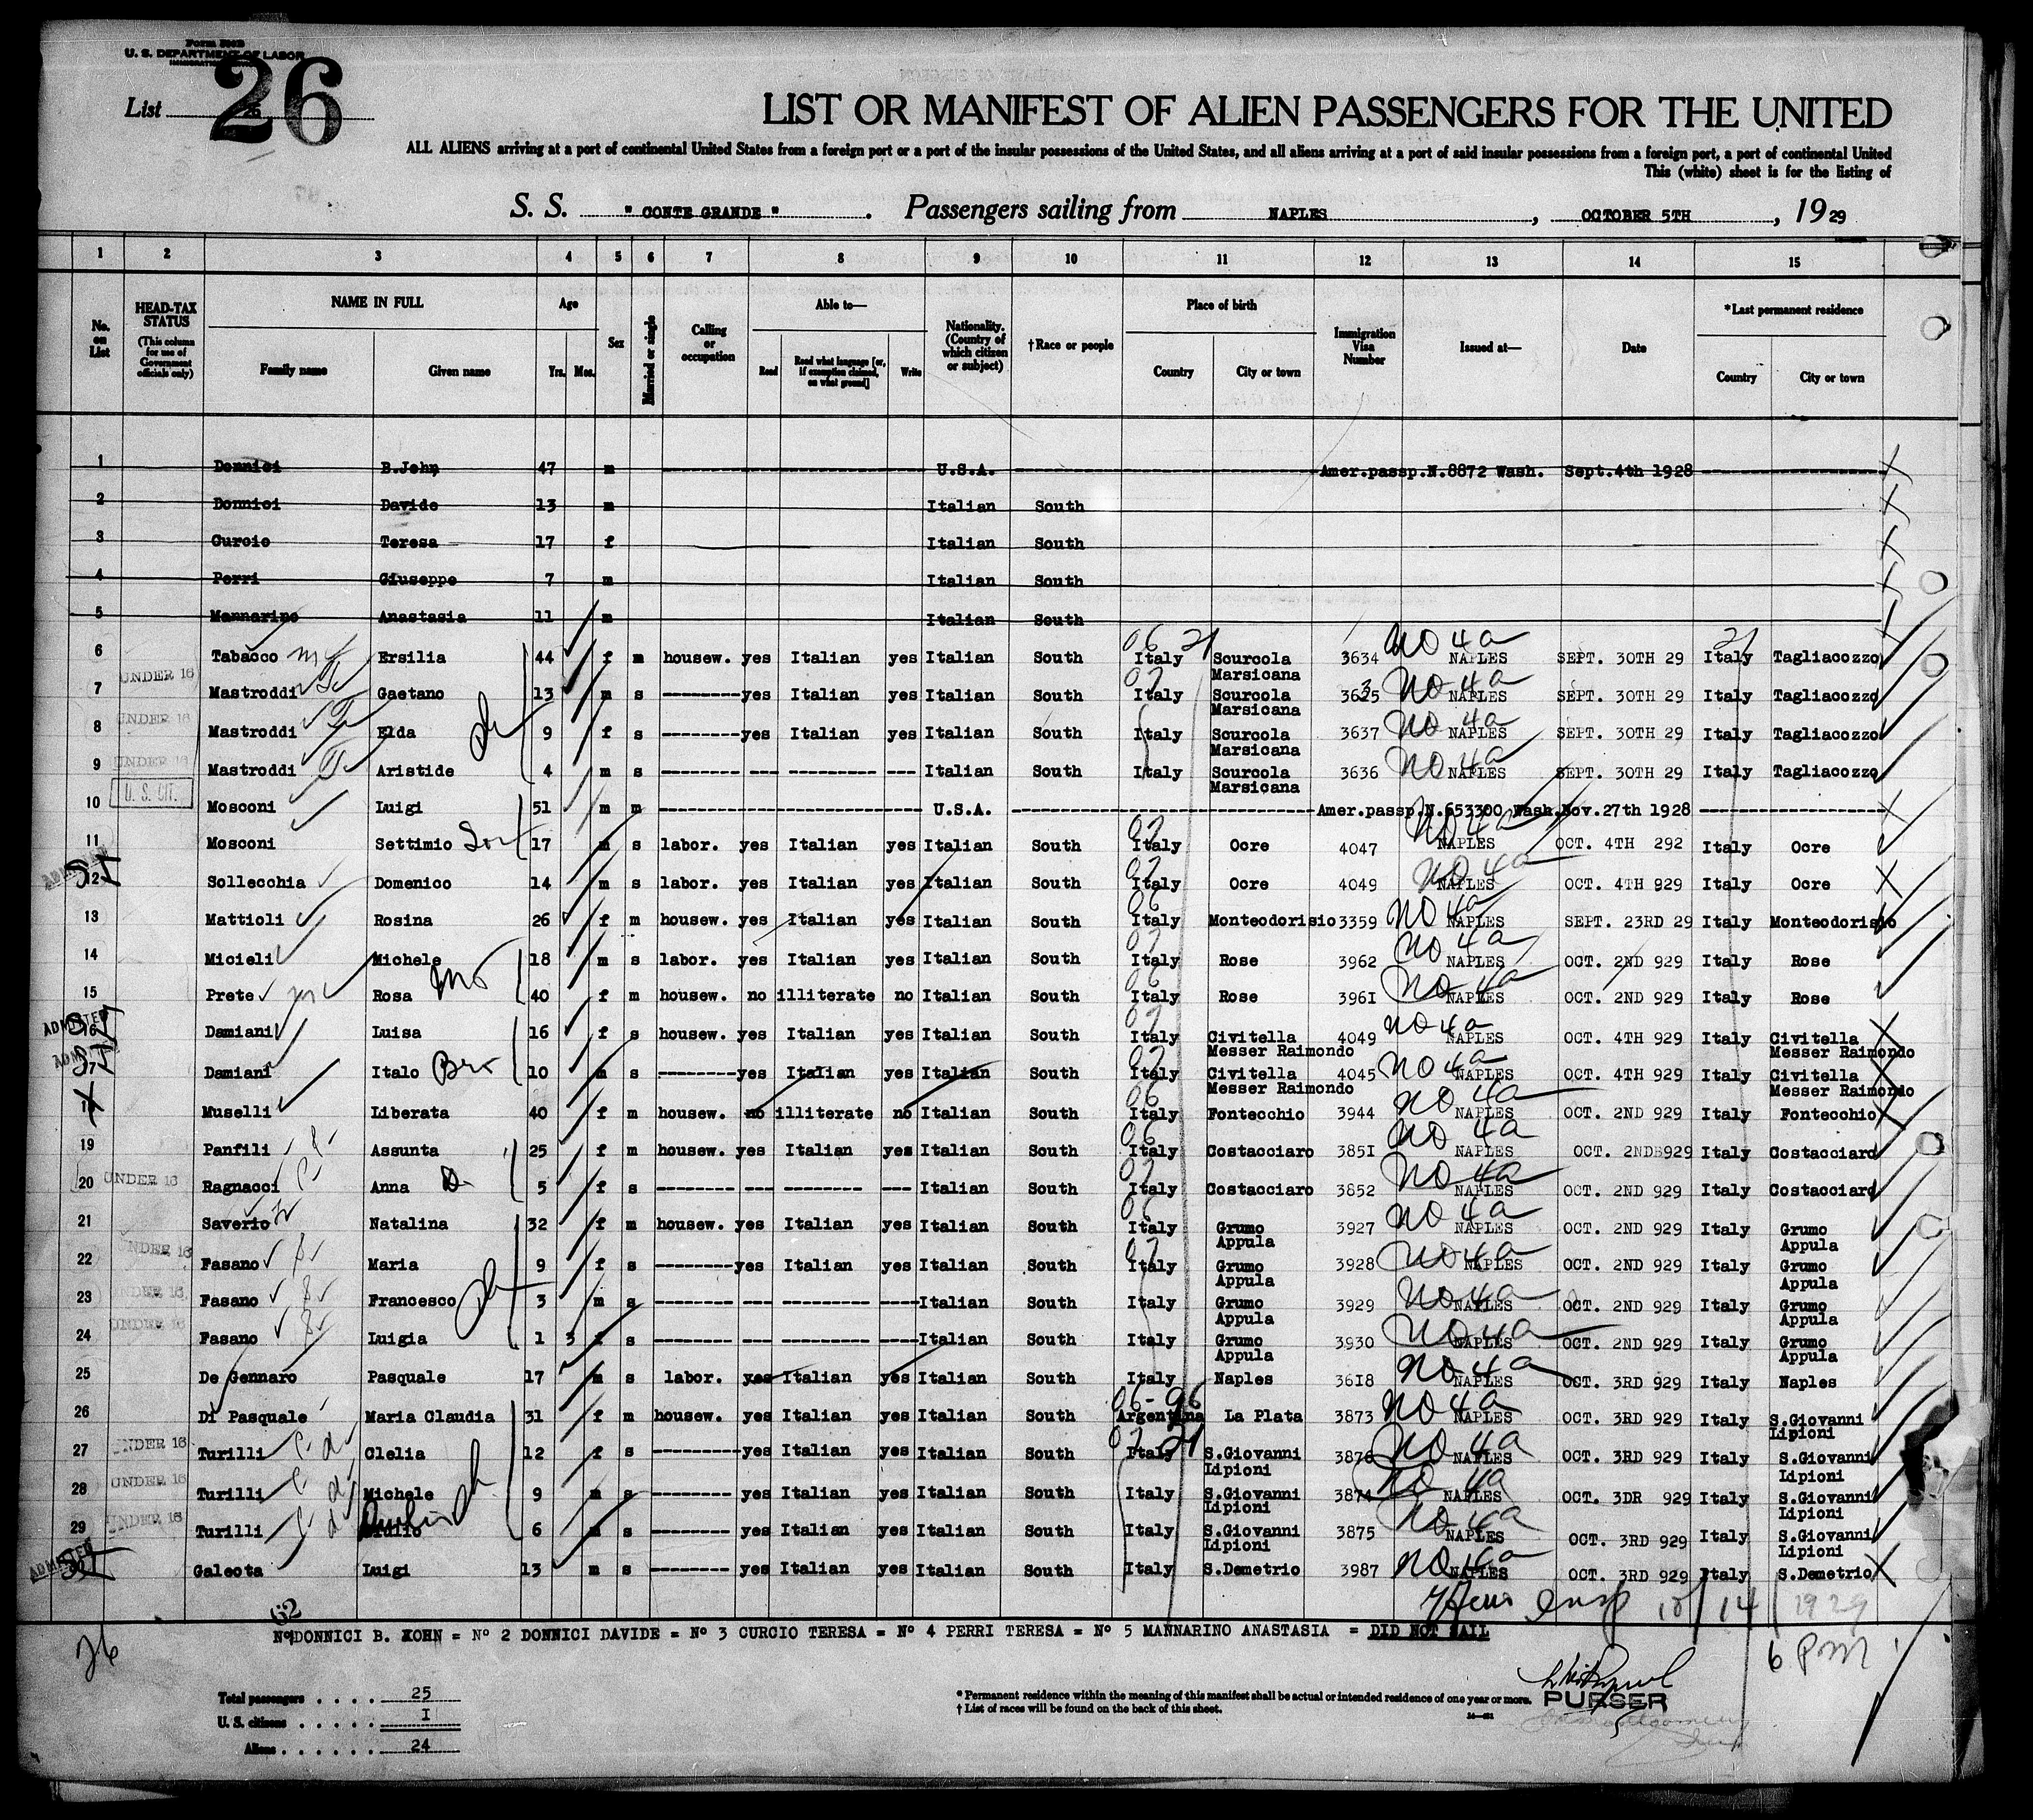 Form 500B
U. S. DEPARTMENT OF LABOR
List 26
26
LIST OR MANIFEST OF ALIEN PASSENGERS FOR THE UNITED
ALL ALIENS arriving at a port of continental United States from a foreign port or a port of the insular possessions of the United States, and all aliens arriving at a port of said insular possessions from a foreign port, a port of continental United
This (white) sheet is for the listing of
S. S. " CONTE GRANDE " . Passengers sailing from NAPLES , OCTOBER 5TH , 19 29
1 2 3 4 5 6 7 8 9 10 11 12 13 14 15
No. on List HEAD-TAX STATUS (This column for use of Government officials only) NAME IN FULL Family name Given name Age Yrs. Mos. Sex Married or single Calling or occupation Able to— Read Read what language [or, if exemption claimed, on what ground] Write Nationality. (Country of which citizen or subject) † Race or people Place of birth Country City or town Immigration Visa Number Issued at— Date * Last permanent residence Country City or town
1 Donnici B.John 47 m U.S.A. Amer.passp.N.8872 Wash. Sept.4th 1928
2 Donnici Davide 13 m Italian South
3 Curcio Teresa 17 f Italian South
4 Perri Giuseppe 7 m Italian South
5 Mannarino Anastasia 11 m Italian South
6 Tabacco Ersilia 44 f m housew. yes Italian yes Italian South 06 21 Italy Scurcola Marsicana 3634 No 4a NAPLES SEPT. 30TH 29 21 Italy Tagliacozzo
7 UNDER 16 Mastroddi Gaetano 13 m s -------- yes Italian yes Italian South 07 Italy Scurcola Marsicana 3635 No 4a NAPLES SEPT. 30TH 29 Italy Tagliacozzo
8 UNDER 16 Mastroddi Elda 9 f s -------- yes Italian yes Italian South Italy Scurcola Marsicana 3637 No 4a NAPLES SEPT. 30TH 29 Italy Tagliacozzo
9 UNDER 16 Mastroddi Aristide 4 m s -------- --- --------- --- Italian South Italy Scurcola Marsicana 3636 No 4a NAPLES SEPT. 30TH 29 Italy Tagliacozzo
10 U. S. CIT. Mosconi Luigi 51 m m U.S.A. Amer.passp.N.653300 Wash.Nov.27th 1928
11 Mosconi Settimio Son 17 m s labor. yes Italian yes Italian South 07 Italy Ocre 4047 No 4a NAPLES OCT. 4TH 292 Italy Ocre
ADMITTED SI 12 Sollecchia Domenico 14 m s labor. yes Italian yes Italian South 07 Italy Ocre 4049 No 4a NAPLES OCT. 4TH 929 Italy Ocre
13 Mattioli Rosina 26 f m housew. yes Italian yes Italian South 06 Italy Monteodorisio 3359 No 4a NAPLES SEPT. 23RD 29 Italy Monteodorisio
14 Micieli Michele 18 m s labor. yes Italian yes Italian South 07 Italy Rose 3962 No 4a NAPLES OCT. 2ND 929 Italy Rose
15 Prete Rosa Mo 40 f m housew. no illiterate no Italian South 06 Italy Rose 396I No 4a NAPLES OCT. 2ND 929 Italy Rose
ADMITTED SI 16 Damiani Luisa 16 f s housew. yes Italian yes Italian South 07 Italy Civitella Messer Raimondo 4049 No 4a NAPLES OCT. 4TH 929 Italy Civitella Messer Raimondo
ADMITTED SI 17 Damiani Italo Bro 10 m s -------- yes Italian yes Italian South 07 Italy Civitella Messer Raimondo 4045 No 4a NAPLES OCT. 4TH 929 Italy Civitella Messer Raimondo
18 Muselli Liberata 40 f m housew. no illiterate no Italian South 06 Italy Fontecchio 3944 No 4a NAPLES OCT. 2ND 929 Italy Fontecchio
19 Panfili Assunta 25 f m housew. yes Italian yes Italian South 06 Italy Costacciaro 385I No 4a NAPLES OCT. 2ND 929 Italy Costacciaro
20 UNDER 16 Ragnacci Anna D 5 f s -------- --- -------- --- Italian South 07 Italy Costacciaro 3852 No 4a NAPLES OCT. 2ND 929 Italy Costacciaro
21 Saverio Natalina 32 f m housew. yes Italian yes Italian South 06 Italy Grumo Appula 3927 No 4a NAPLES OCT. 2ND 929 Italy Grumo Appula
22 UNDER 16 Fasano Maria 9 f s -------- yes Italian yes Italian South 07 Italy Grumo Appula 3928 No 4a NAPLES OCT. 2ND 929 Italy Grumo Appula
23 UNDER 16 Fasano Francesco 3 m s -------- --- --------- ---- Italian South Italy Grumo Appula 3929 No 4a NAPLES OCT. 2ND 929 Italy Grumo Appula
24 UNDER 16 Fasano Luigia 1 3 f s -------- --- --------- ---- Italian South Italy Grumo Appula 3930 No 4a NAPLES OCT. 2ND 929 Italy Grumo Appula
25 De Gennaro Pasquale 17 m s labor. yes Italian yes Italian South Italy Naples 36I8 No 4a NAPLES OCT. 3RD 929 Italy Naples
26 Di Pasquale Maria Claudia 31 f m housew. yes Italian yes Italian South 06-96 Argentina La Plata 3873 No 4a NAPLES OCT. 3RD 929 Italy S.Giovanni Lipioni
27 UNDER 16 Turilli Clelia 12 f s -------- yes Italian yes Italian South 07 21 Italy S.Giovanni Lipioni 3876 No 4a NAPLES OCT. 3RD 929 Italy S.Giovanni Lipioni
28 UNDER 16 Turilli Michele 9 m s -------- yes Italian yes Italian South Italy S.Giovanni Lipioni 3874 No 4a NAPLES OCT. 3DR 929 Italy S.Giovanni Lipioni
29 UNDER 16 Turilli 6 m s -------- yes Italian yes Italian South Italy S.Giovanni Lipioni 3875 No 4a NAPLES OCT. 3RD 929 Italy S.Giovanni Lipioni
ADMITTED SI 30 Galeota Luigi 13 m s -------- yes Italian yes Italian South Italy S.Demetrio 3987 No 4a NAPLES OCT. 3RD 929 Italy S.Demetrio
Insp 10/14/1929
62
Nº1DONNICI B. KOHN = Nº 2 DONNICI DAVIDE = Nº 3 CURCIO TERESA = Nº 4 PERRI TERESA = Nº 5 MANNARINO ANASTASIA = DID NOT SAIL
26
6 PM
Total passengers . . . . 25
U. S. citizens . . . . . I
Aliens . . . . . . 24
* Permanent residence within the meaning of this manifest shall be actual or intended residence of one year or more.
† List of races will be found on the back of this sheet.
PURSER